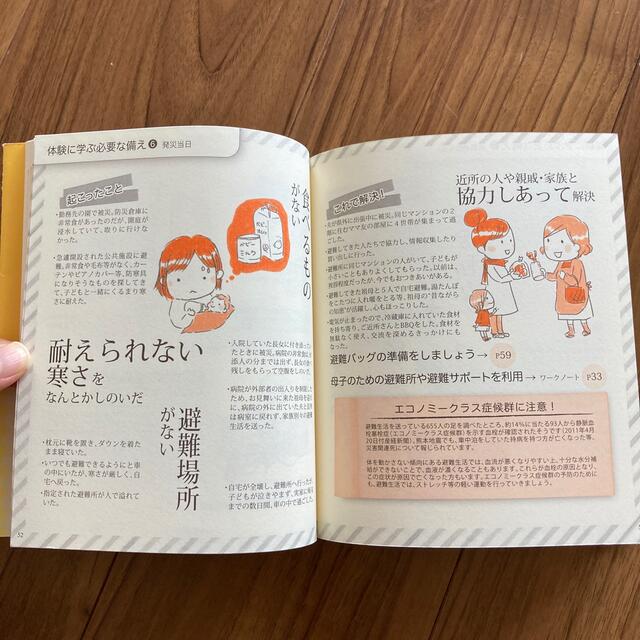 体験に学ぶ必要な備え❻ 発災当日
起こったこと
・勤務先の園で被災。防災倉庫に
非常食があったのだが、園庭が
浸水していて、取りに行けな
かった。
・急遽開設された公共施設に避
難。非常食や毛布等がなく、カー
テンやピアノカバー等、防寒具に
なりそうなものを探してき
て、子どもと一緒にくるまり寒
さに耐えた。
食べるもの
がない
ベビー
ミルク
耐えられない
寒さを
なんとかしのいだ
・入院していた長女に付き添っ
たときに被災。病院の非常食に
添人の分までは出ず、長女の食べ
残しをもらって空腹をしのいだ。
・病院が外部者の出入りを制限し
た。お見舞いに来た祖母を迎え
に、病院の外に出ていた夫と
病室に戻れず、家族別々の避難
生活を送った。
避難場所
がない
・枕元に靴を置き、ダウンを着た
まま寝ていた。
・いつでも避難できるようにと車
の中にいたが、寒さが厳しく、自
宅へ戻った。
・指定された避難所が人で溢れて
いた。
・自宅が全壊し、避難所へ行ったが
子どもが泣きやまず、実家に
までの数日間、車の中で過ごした。
52
これで解決！
近所の人や親戚・家族と
協力しあって解決
・夫が県外に出張中に被災。同じマンションの2
階に住むママ友の部屋に4世帯が集まって過
ごした。
・避難してきた人たちで協力し、情報収集したり
買い出しに行った。
・避難所に同じマンションの人がいて、子どもが
小さいこともありよくしてもらった。以前は、
挨拶程度だったが、今でもおつきあいがある。
・避難してきた祖母と5人で自宅避難。湯たんぽ
をこたつに入れ暖をとる等、祖母の“昔ながら
の知恵”が活躍し、心もほっこりした。
・電気が止まったので、冷蔵庫に入れていた食材
を持ち寄り、ご近所さんとBBQをした。食材を
無駄なく使え、交流を深めるきっかけにも
なった。
避難バッグの準備をしましょう→ P59
母子のための避難所や避難サポートを利用→ ワークノート P33
エコノミークラス症候群に注意！
避難生活を送っている655人の足を調べたところ、約14%に当たる93人から静脈血
栓塞栓症（エコノミークラス症候群）を示す血栓が確認されたそうです（2011年4月
20日付産経新聞）。熊本地震でも、車中泊をしていた持病を持つ方が亡くなった等、
災害関連死について報じられています。
体を動かさない傾向にある避難生活では、血流が悪くなりやすい上、十分な水分補
給ができないことで、血液が濃くなることもあります。これらが血栓の原因となり、
この症状が原因で亡くなった方もいます。エコノミークラス症候群の予防のために
も、避難生活では、ストレッチ等の軽い運動を行っていきましょう。